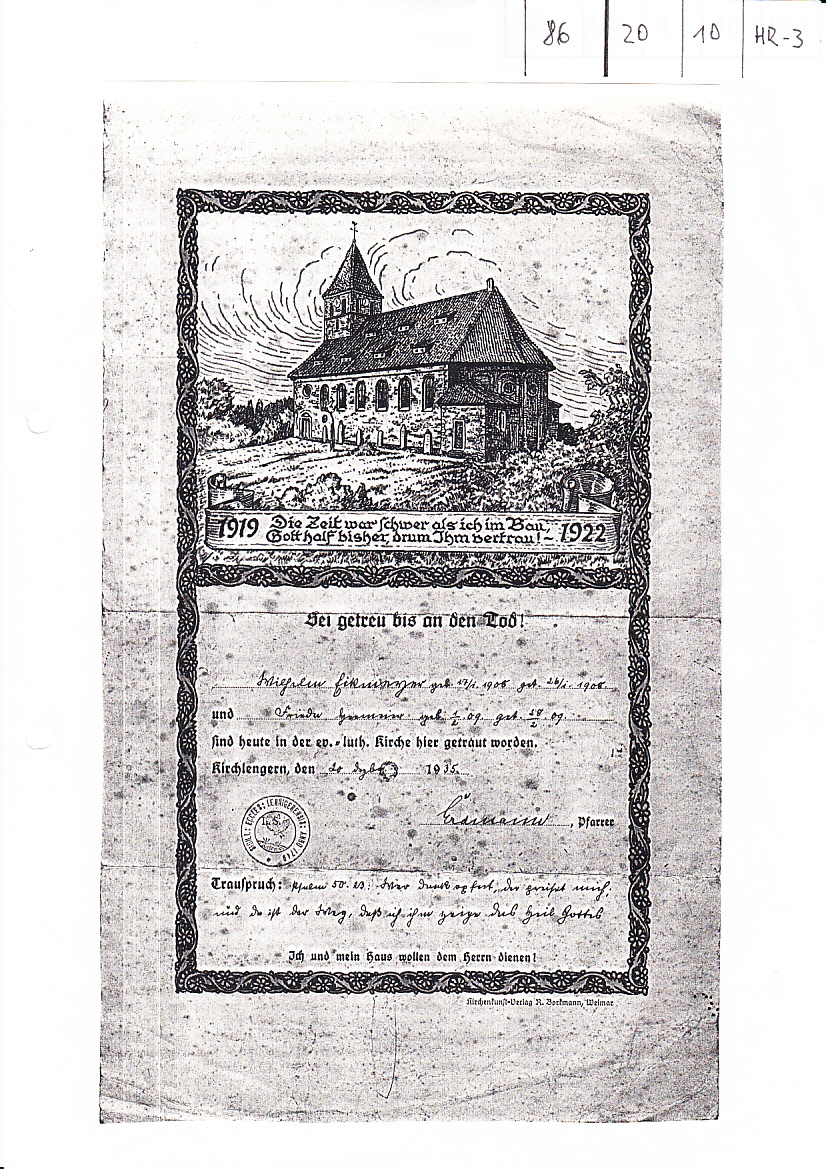 86 20 10 HR-3
1919 Die Zeit war schwer als ich im Bau, 1922
Gott half bisher, drum Ihm vertrau! -
Sei getreu bis an den Tod!
Wilhelm Eikmeyer geb. 17/1. 1908 get. 26/1. 1908
und Frieda geb. 09. get. 09.
sind heute in der ev.-luth. Kirche hier getraut worden.
Kirchlengern, den 20 1935.
, Pfarrer
Trauspruch: Psalm 50. 23: Wer Dank opfert, der preiset mich,
und da ist der Weg, daß ich ihm zeige das Heil Gottes
Ich und mein Haus wollen dem Herrn dienen!
Kirchenkunst-Verlag R. Borkmann, Weimar